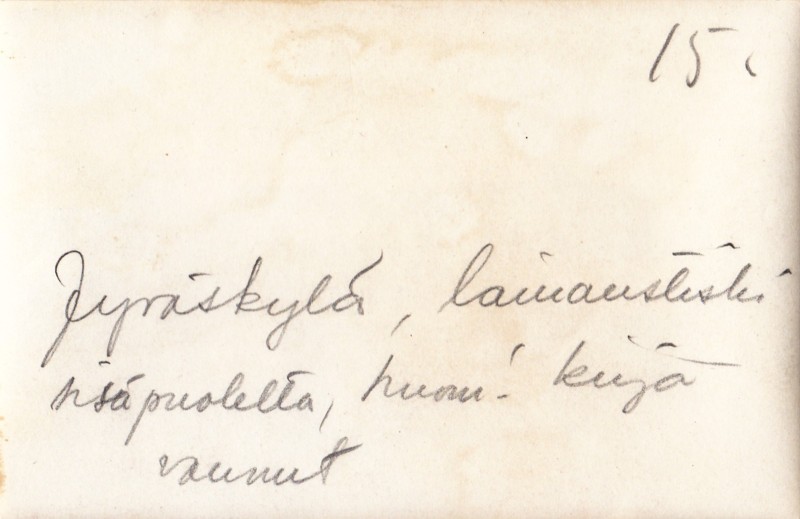 15.
Jyväskylä, lainaustiski
sisäpuolelta, huom! kirja
vaunut